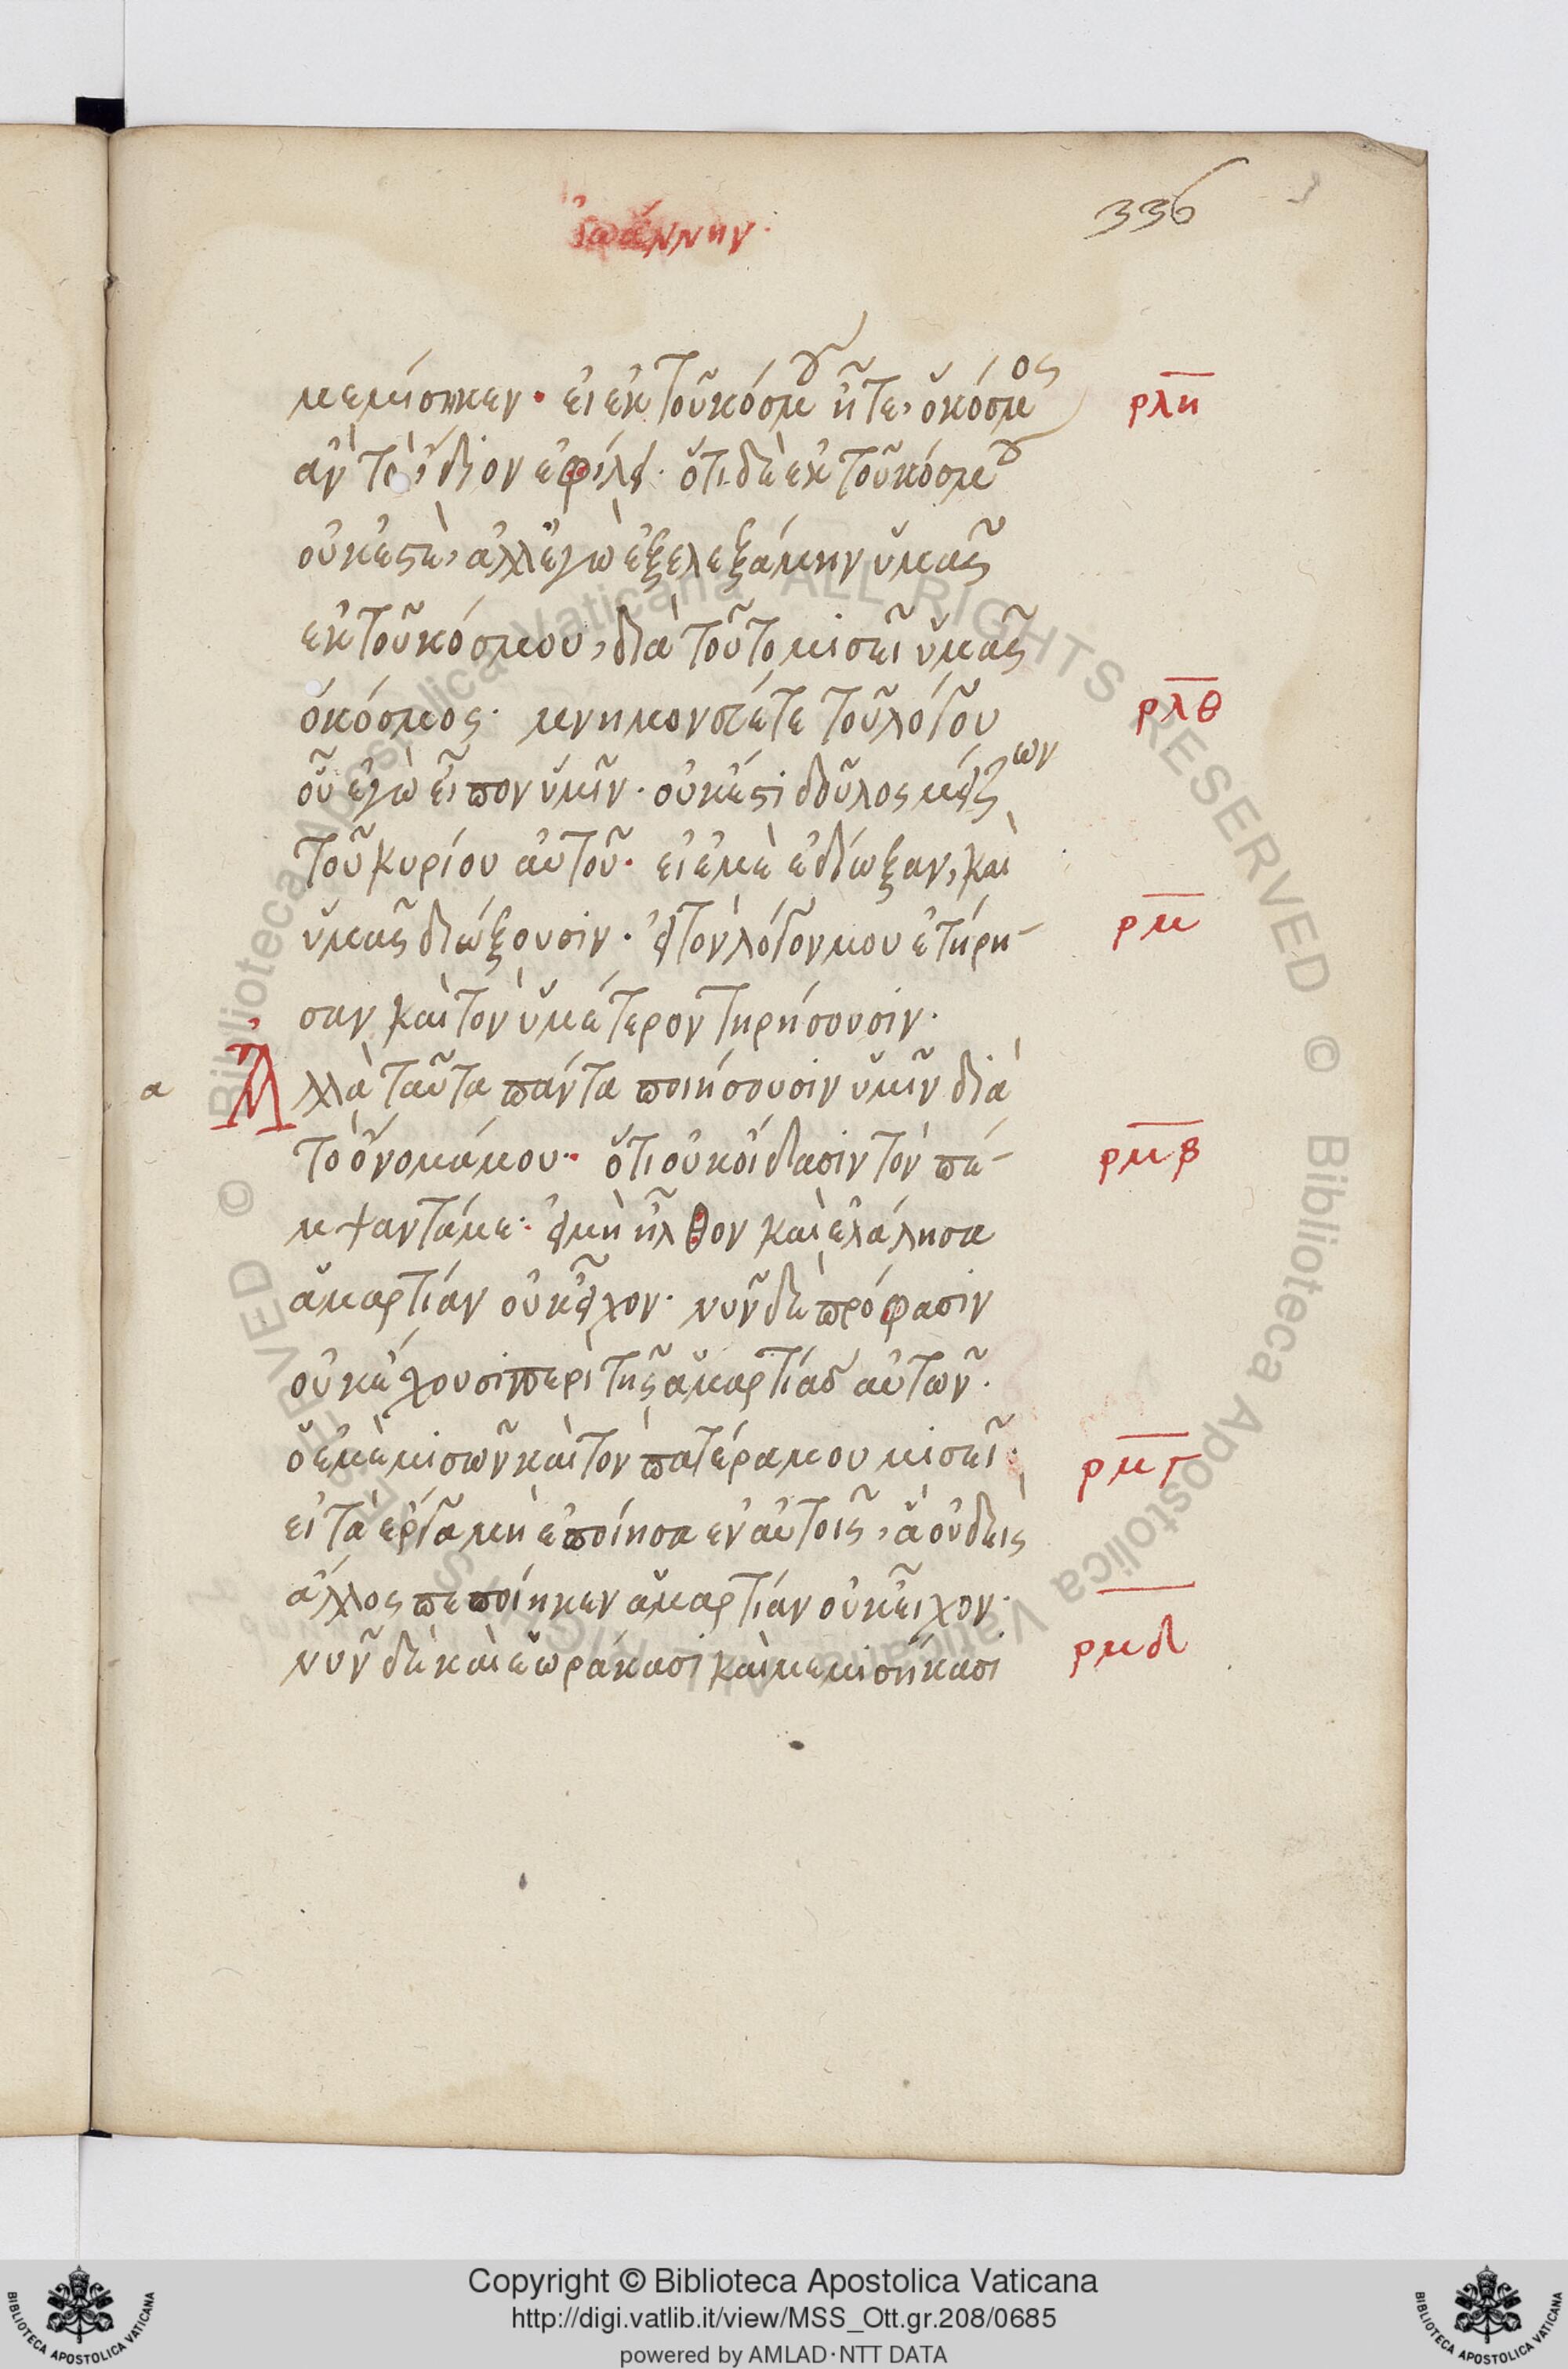 ἰωάννην.
336
μεμίσηκεν. εἰ ἐκ τοῦ κόσμου ἦτε, ὁ κόσμος
ρλη
ἂν τὸ ἴδιον ἐφίλει. ὅτι δὲ ἐκ τοῦ κόσμου
οὐκ ἐστὲ, ἀλλ' ἐγὼ ἐξελεξάμην ὑμᾶς
ἐκ τοῦ κόσμου, διὰ τοῦτο μισεῖ ὑμᾶς
ὁ κόσμος. μνημονεύετε τοῦ λόγου
ρλθ
οὗ ἐγὼ εἶπον ὑμῖν. οὐκ ἔστι δοῦλος μείζων
τοῦ κυρίου αὐτοῦ. εἰ ἐμὲ ἐδίωξαν, καὶ
ὑμᾶς διώξουσιν. εἰ τὸν λόγον μου ἐτήρη-
ρμ
σαν καὶ τὸν ὑμέτερον τηρήσουσιν.
α
Ἀλλὰ ταῦτα πάντα ποιήσουσιν ὑμῖν διὰ
τὸ ὄνομά μου. ὅτι οὐκ οἴδασιν τὸν πέ-
ρμβ
μψαντά με. εἰ μὴ ἦλθον καὶ ἐλάλησα
ἁμαρτίαν οὐκ εἶχον. νῦν δὲ πρόφασιν
οὐκ ἔχουσι περὶ τῆς ἁμαρτίας αὐτῶν.
ὁ ἐμὲ μισῶν καὶ τὸν πατέρα μου μισεῖ.
ρμγ
εἰ τὰ ἔργα μὴ ἐποίησα ἐν αὐτοῖς, ἃ οὐδεὶς
ἄλλος πεποίηκεν ἁμαρτίαν οὐκ εἶχον.
νῦν δὲ καὶ ἑωράκασι καὶ μεμισήκασι
ρμδ
Copyright © Biblioteca Apostolica Vaticana
http://digi.vatlib.it/view/MSS_Ott.gr.208/0685
powered by AMLAD·NTT DATA